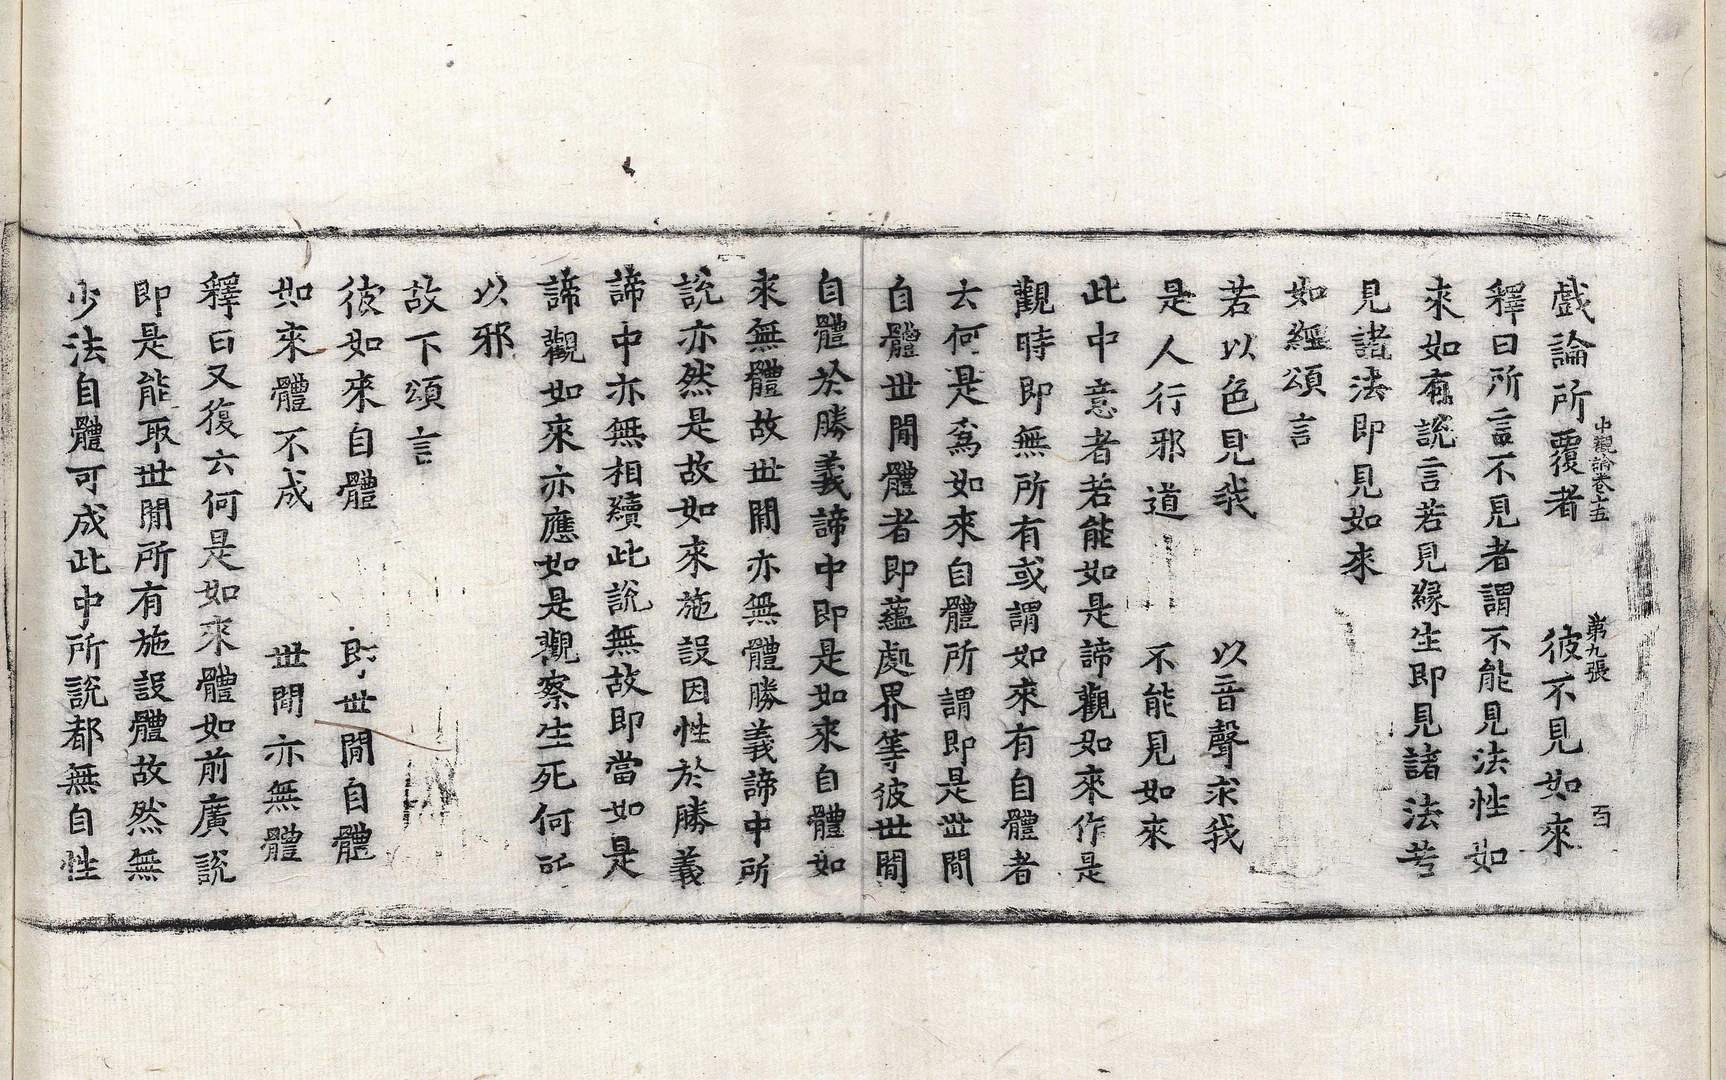 中觀論卷十五 第九張 百
戲論所覆者 彼不見如來
釋曰所言不見者謂不能見法性如
來如有說言若見緣生即見諸法若
見諸法即見如來
如經頌言
若以色見我 以音聲求我
是人行邪道 不能見如來
此中意者若能如是諦觀如來作是
觀時即無所有或謂如來有自體者
云何是爲如來自體所謂即是世間
自體世間體者即蘊處界等彼世間
自體於勝義諦中即是如來自體如
來無體故世間亦無體勝義諦中所
說亦然是故如來施設因性於勝義
諦中亦無相續此說無故即當如是
諦觀如來亦應如是觀察生死何所
以邪
故下頌言
彼如來自體 即世間自體
如來體不成 世間亦無體
釋曰又復云何是如來體如前廣說
即是能取世間所有施設體故然無
少法自體可成此中所說都無自性